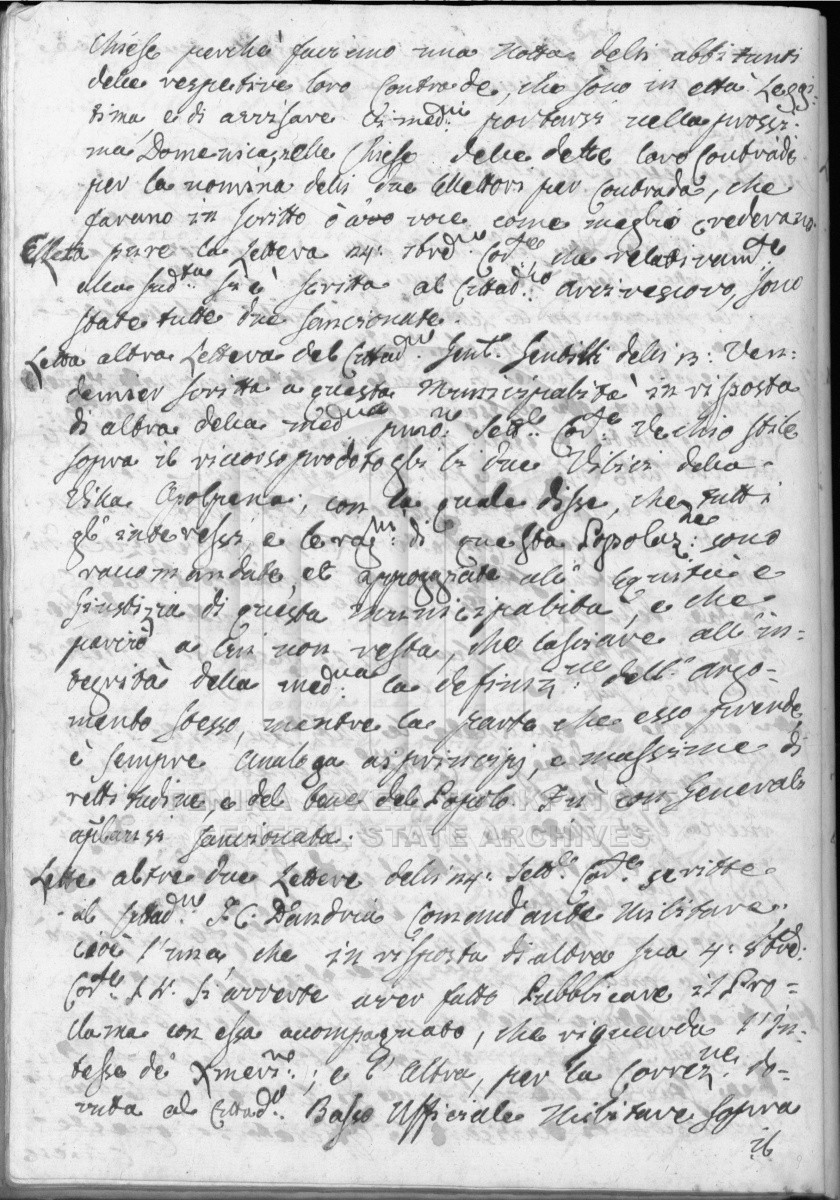 Chiese perche facciano una Notta delli abbitanti
delle respetive loro Contrade, che sono in ettà Leggi-
tima, e di avvisare li med.mi portarsi nella prossi-
ma Domenica, nelle Chiese delle dette loro Contrade
per la nomina delli due Elettori per Contrada, che
farano in scritto ò a voce come meglio crederano
Letta pure la Lettera 14: 7bre Cor.te, che relativam.te
alla sud.ta si è scritta al Cittad.no Arcivescovo, sono
state tutte due sancionate.
Letta altra Lettera del Cittad.no Gen.l Gentilli delli 13: Ven-
demier scritta a questa Municipalità in risposta
di altra della med.ma Sett.e Cor.te Vechio stile
sopra il ricorso prodotogli li due della
con la quale disse, che tutti
gl'interessi, e le rag.ni di questa Popolaz.ne sono
racomandate, et appoggiate all'Equità e
Giustizia di questa Municipalità, e che
perciò a Lui non resta, che lasciare all'in-
tegrità della med.ma la definiz.ne dell'argo-
mento stesso, mentre la parte che esso prende
è sempre analoga ai principj, e massime di
rettitudine, e del bene del Popolo. Fù con Generale
aplausi sancionata.
Lette altre due Lettere delli 14: Sett.e Cor.te scritte
al Cittad.no D'Andria Comandante Militare,
cioè l'una che in risposta di altra sua 4: 8bre
Cor.te s'averte aver fatto Pubblicare il Pro-
clama con essa acompagnato, che riguarda l'In-
tesse de ; e l'altra, per la Correz.ne do-
vuta al Cittad.no Basso Ufficiale Militare sopra
il
GENERAL STATE ARCHIVES